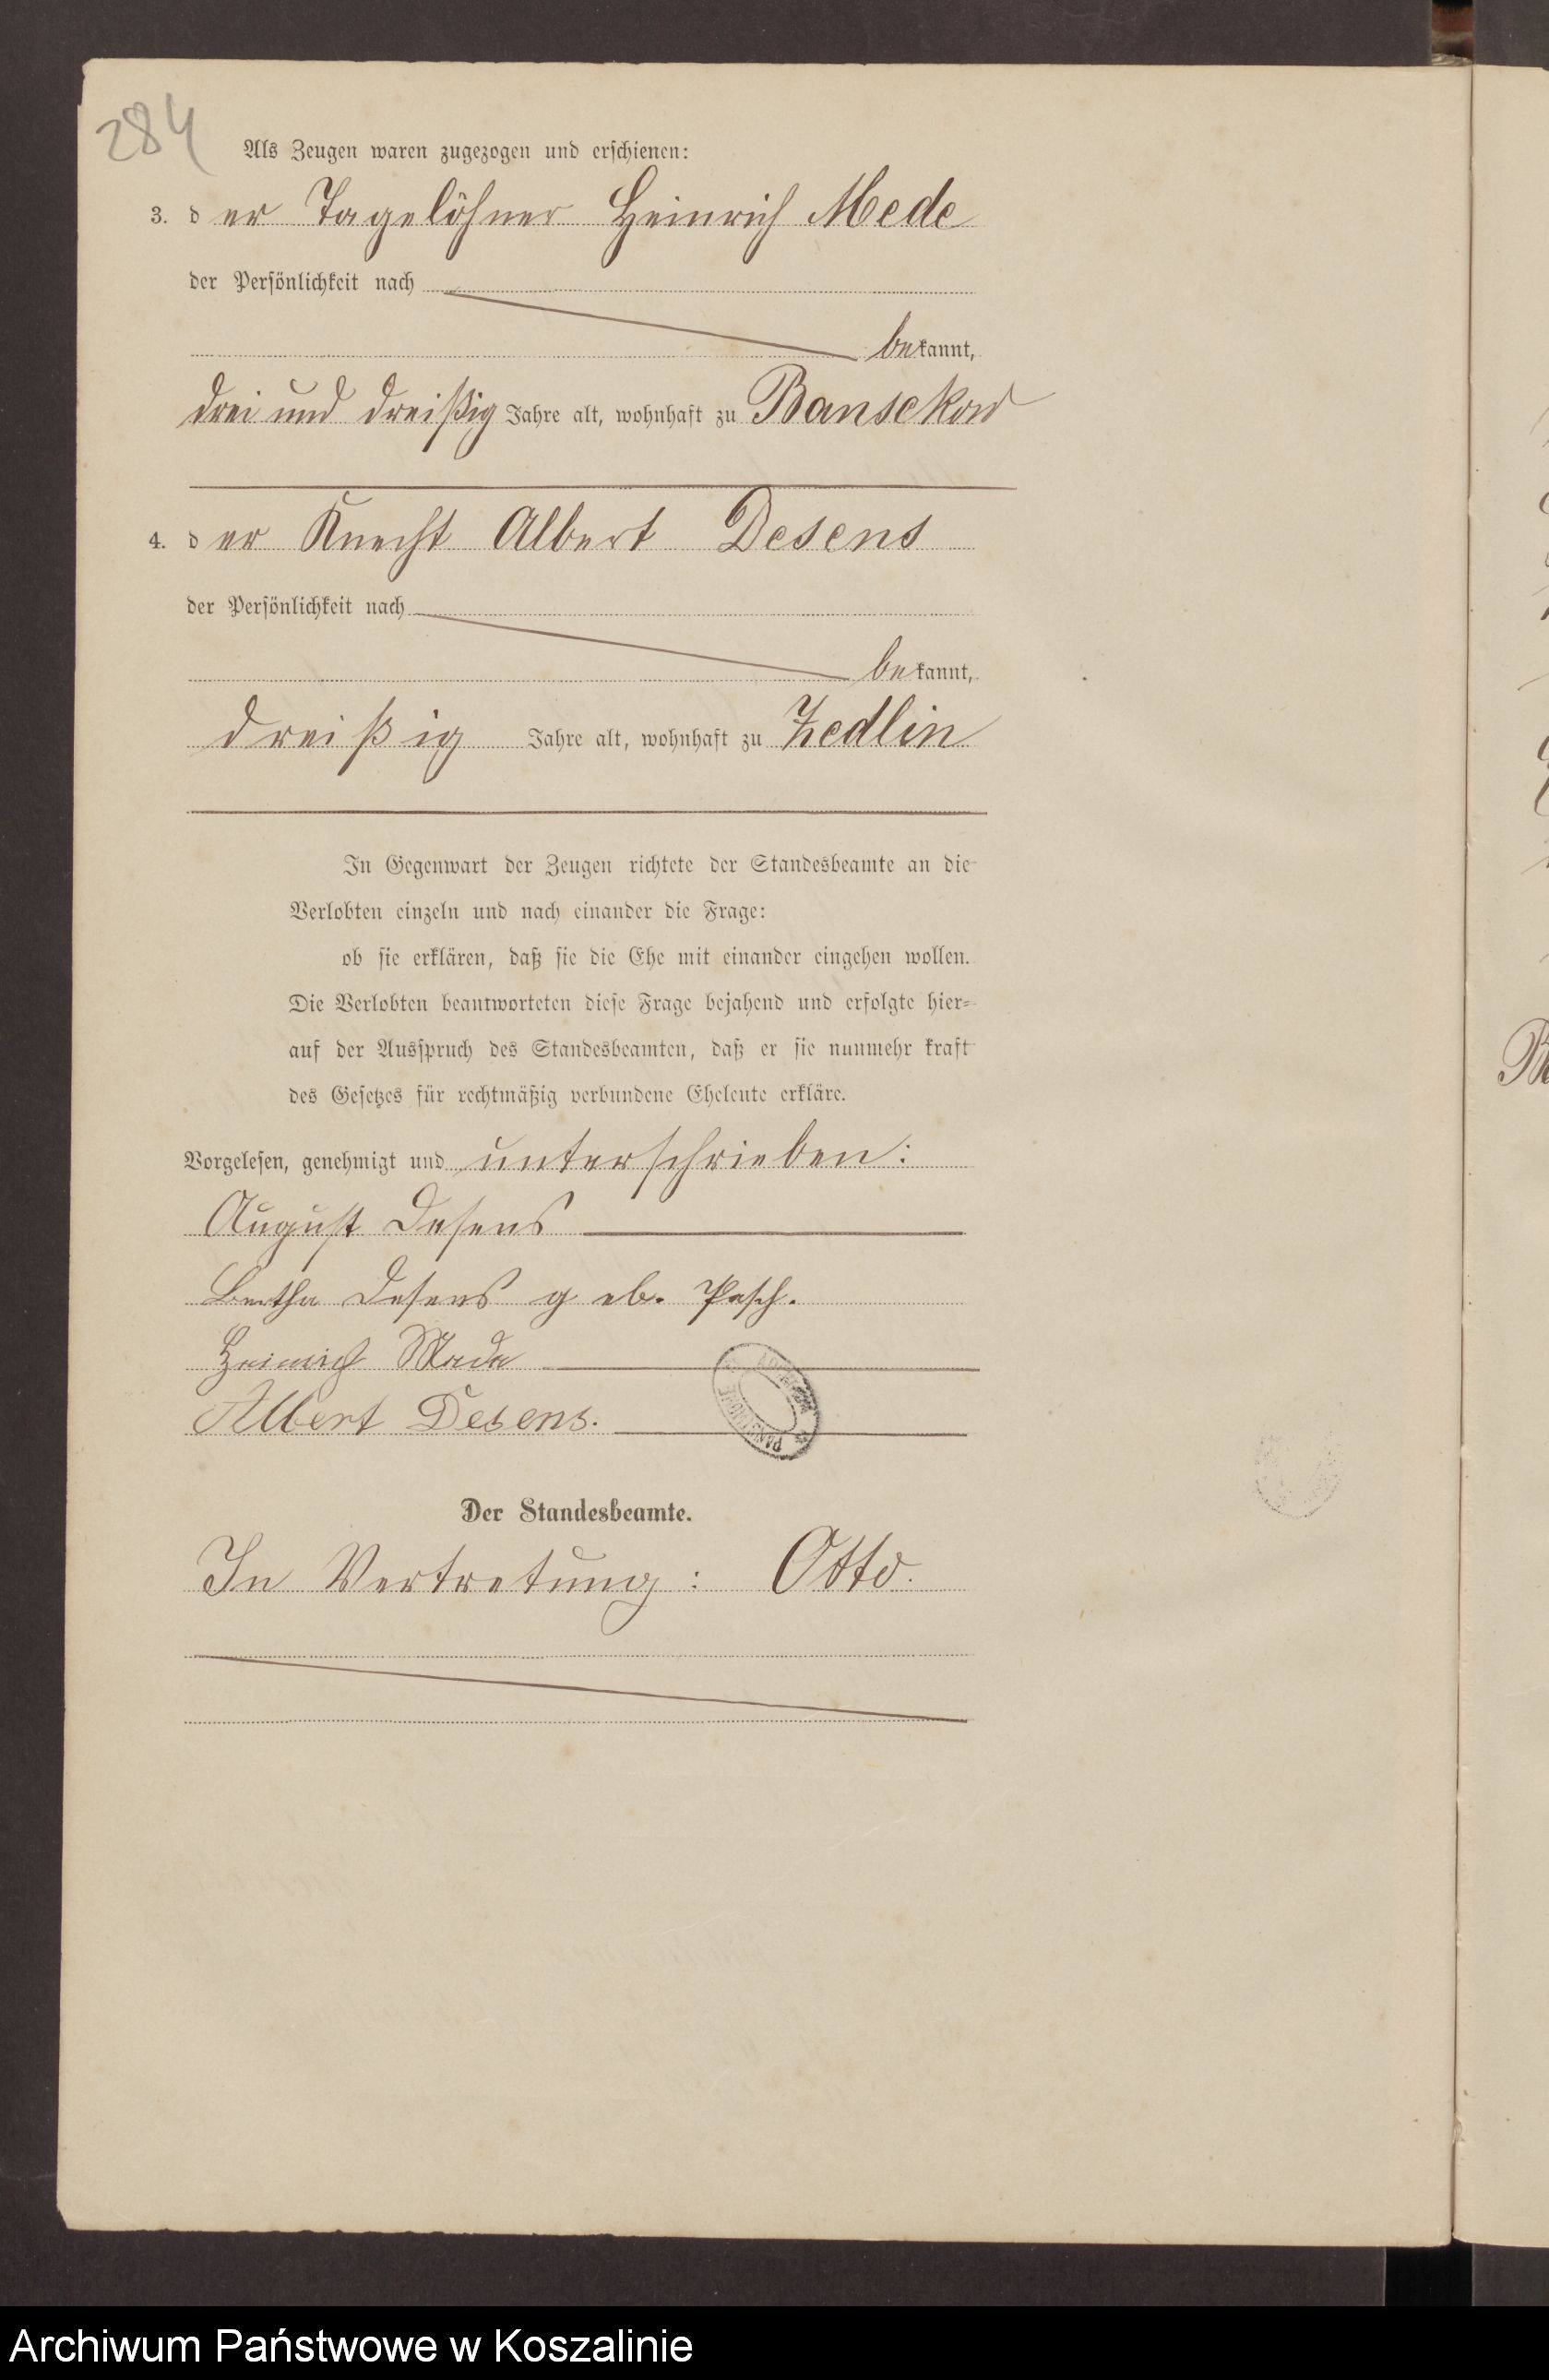 284
Als Zeugen waren zugezogen und erschienen:
3. der Tagelöhner Heinrich Mede
der Persönlichkeit nach
bekannt,
drei und dreißig Jahre alt, wohnhaft zu Bansekow
4. der Knecht Albert Desens
der Persönlichkeit nach
bekannt,
dreißig Jahre alt, wohnhaft zu Zedlin
In Gegenwart der Zeugen richtete der Standesbeamte an die
Verlobten einzeln und nach einander die Frage:
ob sie erklären, daß sie die Ehe mit einander eingehen wollen.
Die Verlobten beantworteten diese Frage bejahend und erfolgte hier=
auf der Ausspruch des Standesbeamten, daß er sie nunmehr kraft
des Gesetzes für rechtmäßig verbundene Eheleute erkläre.
Vorgelesen, genehmigt und unterschrieben:
August Desens
Bertha Desens geb. Pasch.
Heinrich Mede
Albert Desens.
Der Standesbeamte.
In Vertretung: Otto.
Archiwum Państwowe w Koszalinie